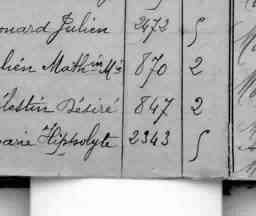 onard Julien 2472 5
lién Mathin Mie 870 2
élestin Désiré 847 2
arie Hippolyte 2343 5